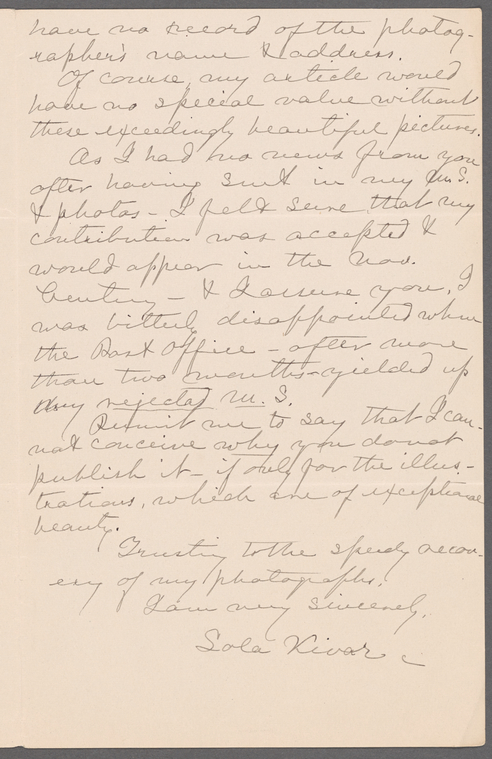 have no record of the photog-
rapher's name & address.
Of course, my article would
have no special value without
these exceedingly beautiful pictures.
As I had no news from you
after having sent in my M.S.
& photos - I felt sure that my
contribution was accepted &
would appear in the Nov.
Century - & I assure you, I
was bitterly disappointed when
the Post Office - after more
than two months - yielded up
my rejected M.S.
Permit me to say that I can-
not conceive why you do not
publish it - if only for the illus-
trations, which are of exceptional
beauty.
Trusting to the speedy recov-
ery of my photographs,
I am very sincerely,
Lola